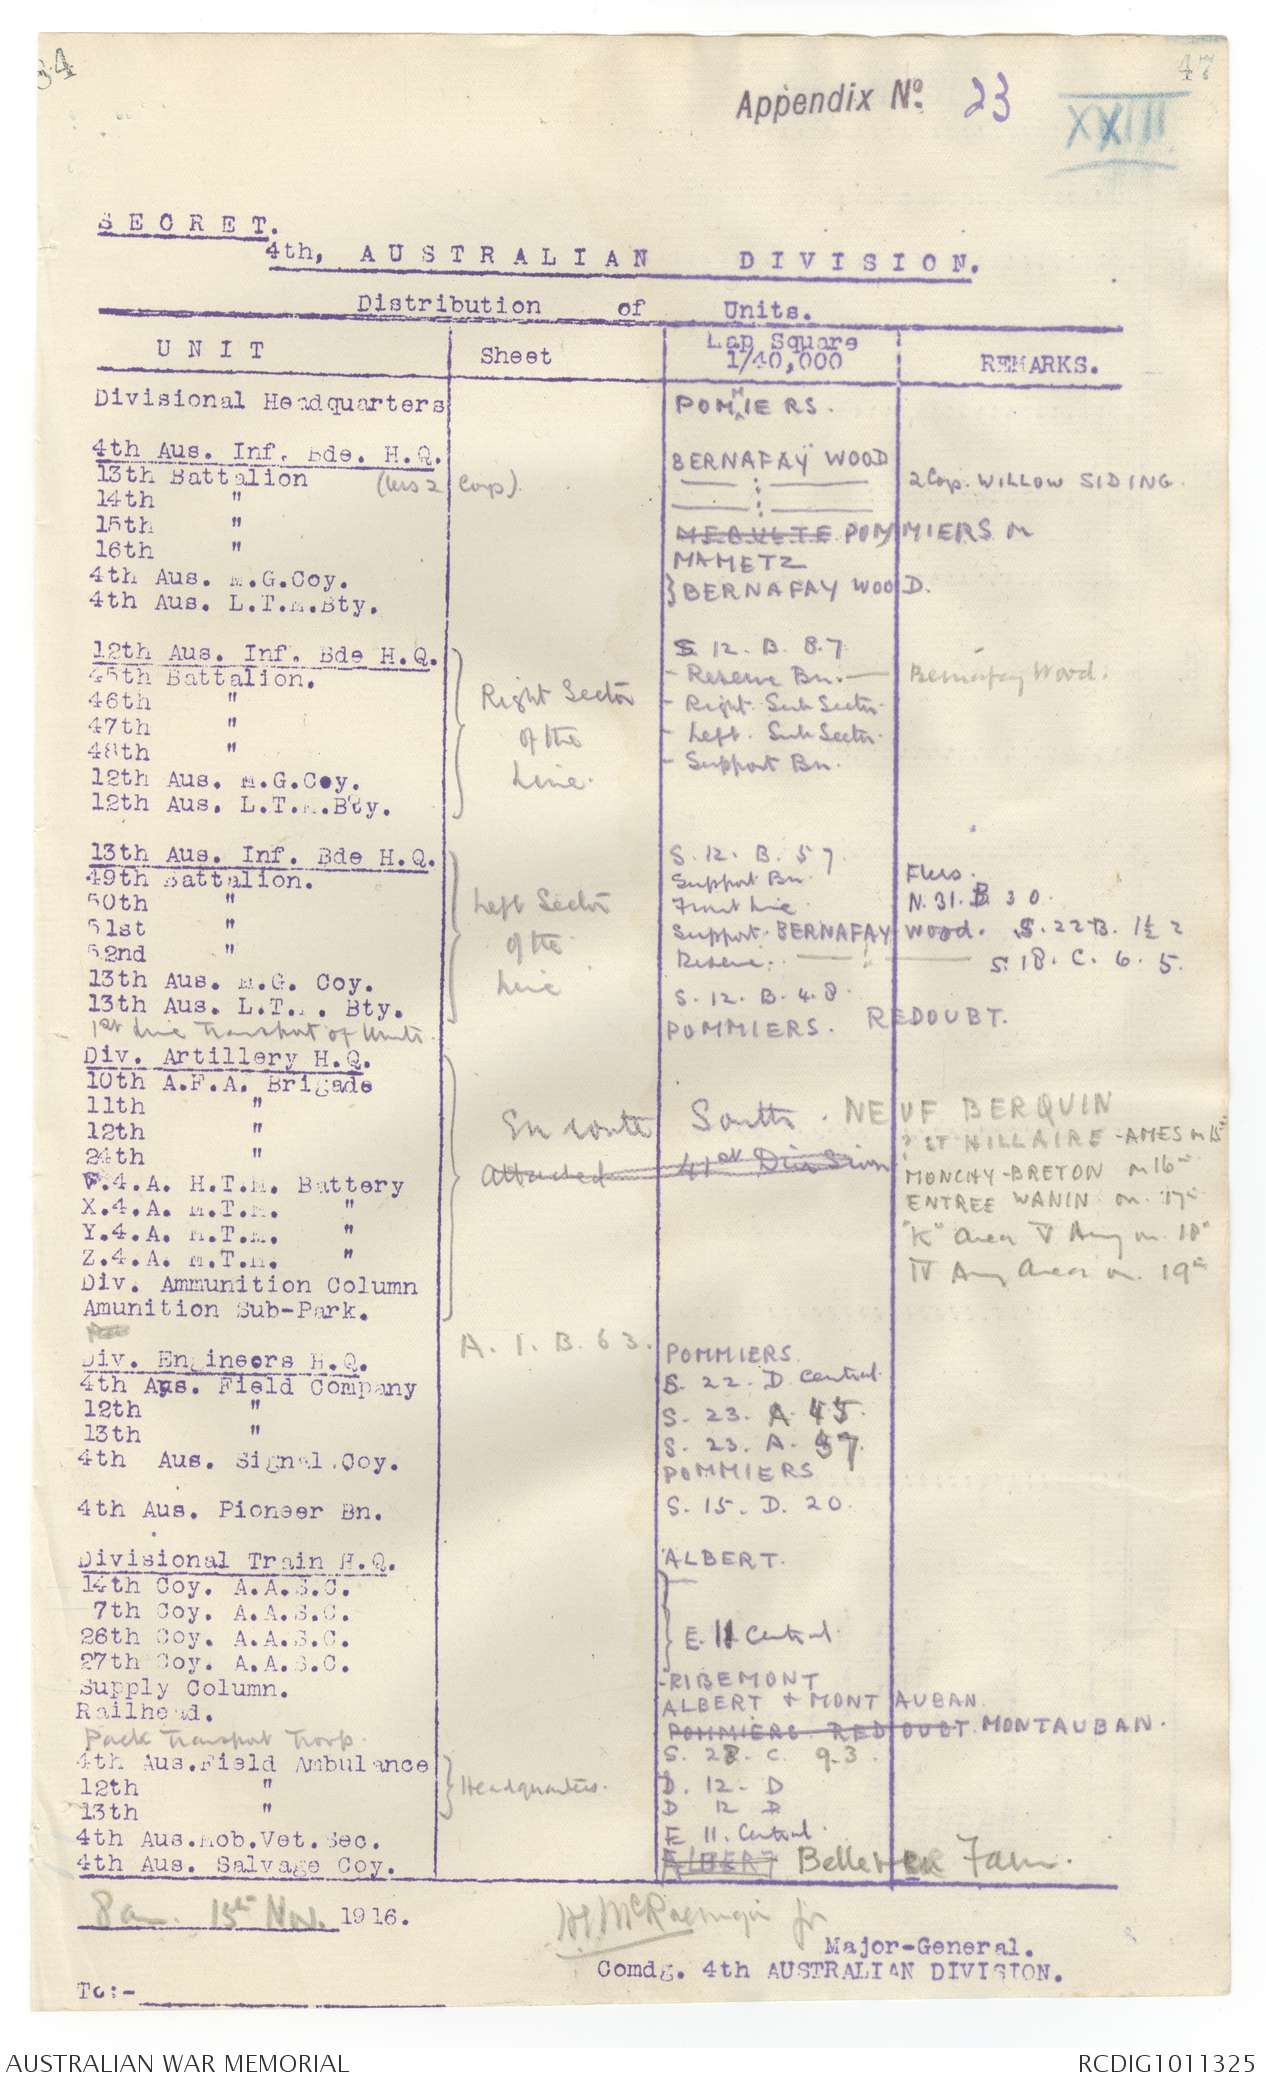 34
47
Appendix No. 23
XXIII
SECRET.
4th, AUSTRALIAN DIVISION.
Distribution of Units.
UNIT Sheet Map Square 1/40,000 REMARKS.
Divisional Headquarters POMMIERS.
4th Aus. Inf. Bde. H.Q. BERNAFAY WOOD
13th Battalion (less 2 Coys). — : — 2 Coys. WILLOW SIDING.
14th " — : —
15th " MEAULTE POMMIERS
16th " MAMETZ
4th Aus. M.G.Coy. } BERNAFAY WOOD.
4th Aus. L.T.M.Bty.
12th Aus. Inf. Bde H.Q. S. 12. B. 8.7
45th Battalion. - Reserve Bn. — Bernafay Wood.
46th " Right Sector - Right Sub Sector.
47th " of the - Left. Sub Sector.
48th " Line. - Support Bn.
12th Aus. M.G.Coy.
12th Aus. L.T.M.Bty.
13th Aus. Inf. Bde H.Q. S. 12. B. 5 7.
49th Battalion. Support Bn. Flers.
50th " Left Sector Front Line. N. 31. B. 3 0.
51st " of the Support. BERNAFAY Wood. S. 22 B. 1½ 2
52nd " Line Reserve. — : — S. 18. C. 6. 5.
13th Aus. M.G. Coy. S. 12. B. 4. 8.
13th Aus. L.T.M. Bty.
1st Line Transport of Units. POMMIERS. REDOUBT.
Div. Artillery H.Q.
10th A.F.A. Brigade
11th " En route South. NEUF BERQUIN
12th " ? ST HILLAIRE - AMES on 15th
24th " Attached 41st Division MONCHY-BRETON on 16th
V.4.A. H.T.M. Battery ENTREE WANIN on 17th
X.4.A. M.T.M. "
Y.4.A. M.T.M. " "K" area V Army on 18th
Z.4.A. M.T.M. " IV Army Area on 19th
Div. Ammunition Column
Amunition Sub-Park.
A. 1. B. 6 3.
Div. Engineers H.Q. POMMIERS.
4th Aus. Field Company S. 22. D. Central.
12th " S. 23. A. 45.
13th " S. 23. A. 57.
4th Aus. Signal.Coy. POMMIERS
4th Aus. Pioneer Bn. S. 15. D. 20.
Divisional Train H.Q. ALBERT.
14th Coy. A.A.S.C.
7th Coy. A.A.S.C.
26th Coy. A.A.S.C. E. 11 Central.
27th Coy. A.A.S.C.
Supply Column. -RIBEMONT
Railhead. ALBERT + MONTAUBAN.
Pack Transport Troop. POMMIERS REDOUBT. MONTAUBAN.
4th Aus.Field Ambulance S. 28. C. 9.3.
12th " Headquarters. D. 12. D
13th " D 12 D
4th Aus.Mob.Vet.Sec. E 11. Central.
4th Aus. Salvage Coy. ALBERT Bellevue Farm.
8 am. 15th Nov. 1916.
Major-General.
Comdg. 4th AUSTRALIAN DIVISION.
To:-
AUSTRALIAN WAR MEMORIAL RCDIG1011325